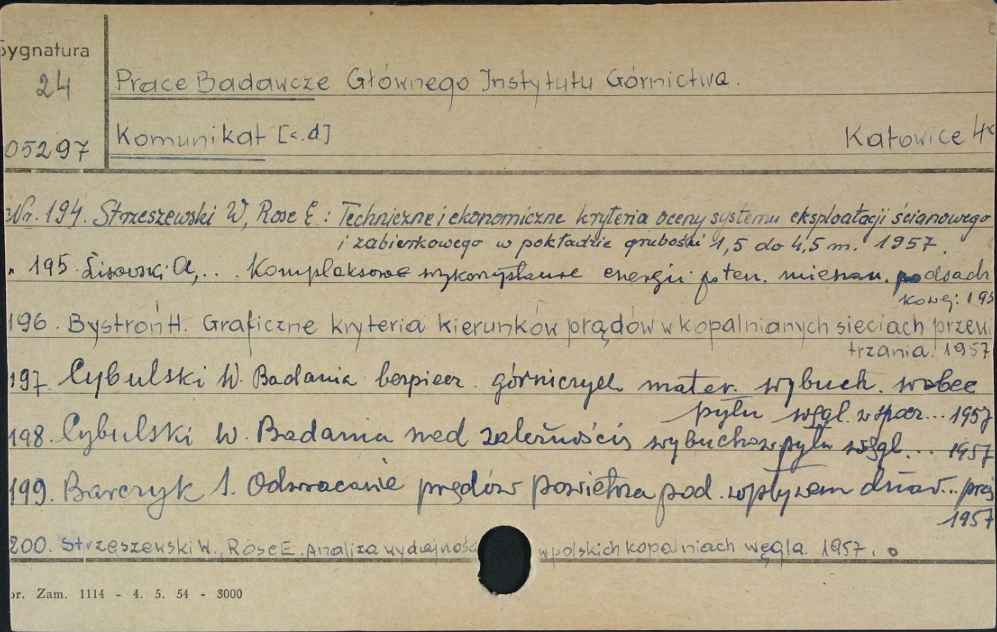 Sygnatura
24
05297
Prace Badawcze Głównego Instytutu Górnictwa.
Komunikat [c.d]
Katowice 4°
Nr. 194. Strzeszewski W, Rose E.: Techniczne i ekonomiczne kryteria oceny systemu eksploatacji ścianowego
i zabierkowego w pokładzie grubości 1,5 do 4,5 m. 1957.
" 195. Lisowski A,.. Kompleksowe wykorzystanie energii poten. mieszan. podsadz
kowej: 195
196. Bystroń H. Graficzne kryteria kierunków prądów w kopalnianych sieciach przewi
trzania. 1957
197. Cybulski W. Badania bezpiecz. górniczych mater. wybuch. wobec
pyłu węgl. w spec... 1957
198. Cybulski W. Badania nad zależnością wybuchów pyłu węgl... 1957
199. Barczyk S. Odwracanie prądów powietrza pod. wpływem dział...
1957
200. Strzeszewski W., Rose E. Analiza wydajności w polskich kopalniach węgla. 1957.
or. Zam. 1114 - 4. 5. 54 - 3000